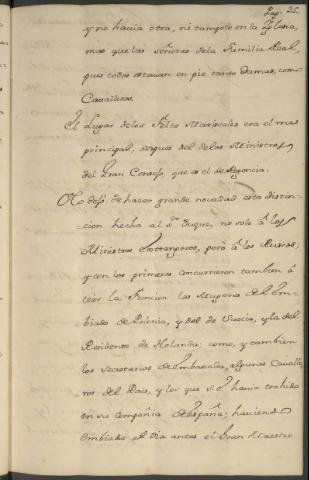 Pag. 35.
y no havia otra, ni tampoco en la Yglesia,
mas que las señoras dela Familia Real,
pues todos estavan en pie tanto Damas, como
Cavalleros.
El Lugar delos Felts Mariscales era el mas
principal, despues del delos Ministros
del Gran Consejo, que es el de Regencia.
No dejó de hacer grande novedad esta distin-
cion hecha al Sr. Duque, no solo â los
Ministros Extrangeros, pero â los Russos;
y con los primeros concurrieron tambien â
veer la Funcion las Mugeres del Em-
biado de Polonia, y del de Suecia, y la del
Residente de Holanda; como, y tambien
los Secretarios de Embaxada, algunos Cavalle-
ros del Pais, y los que S. E. havia trahido
en su Compañia de España; haviendo
embiado el dia antes el Gran Maestro